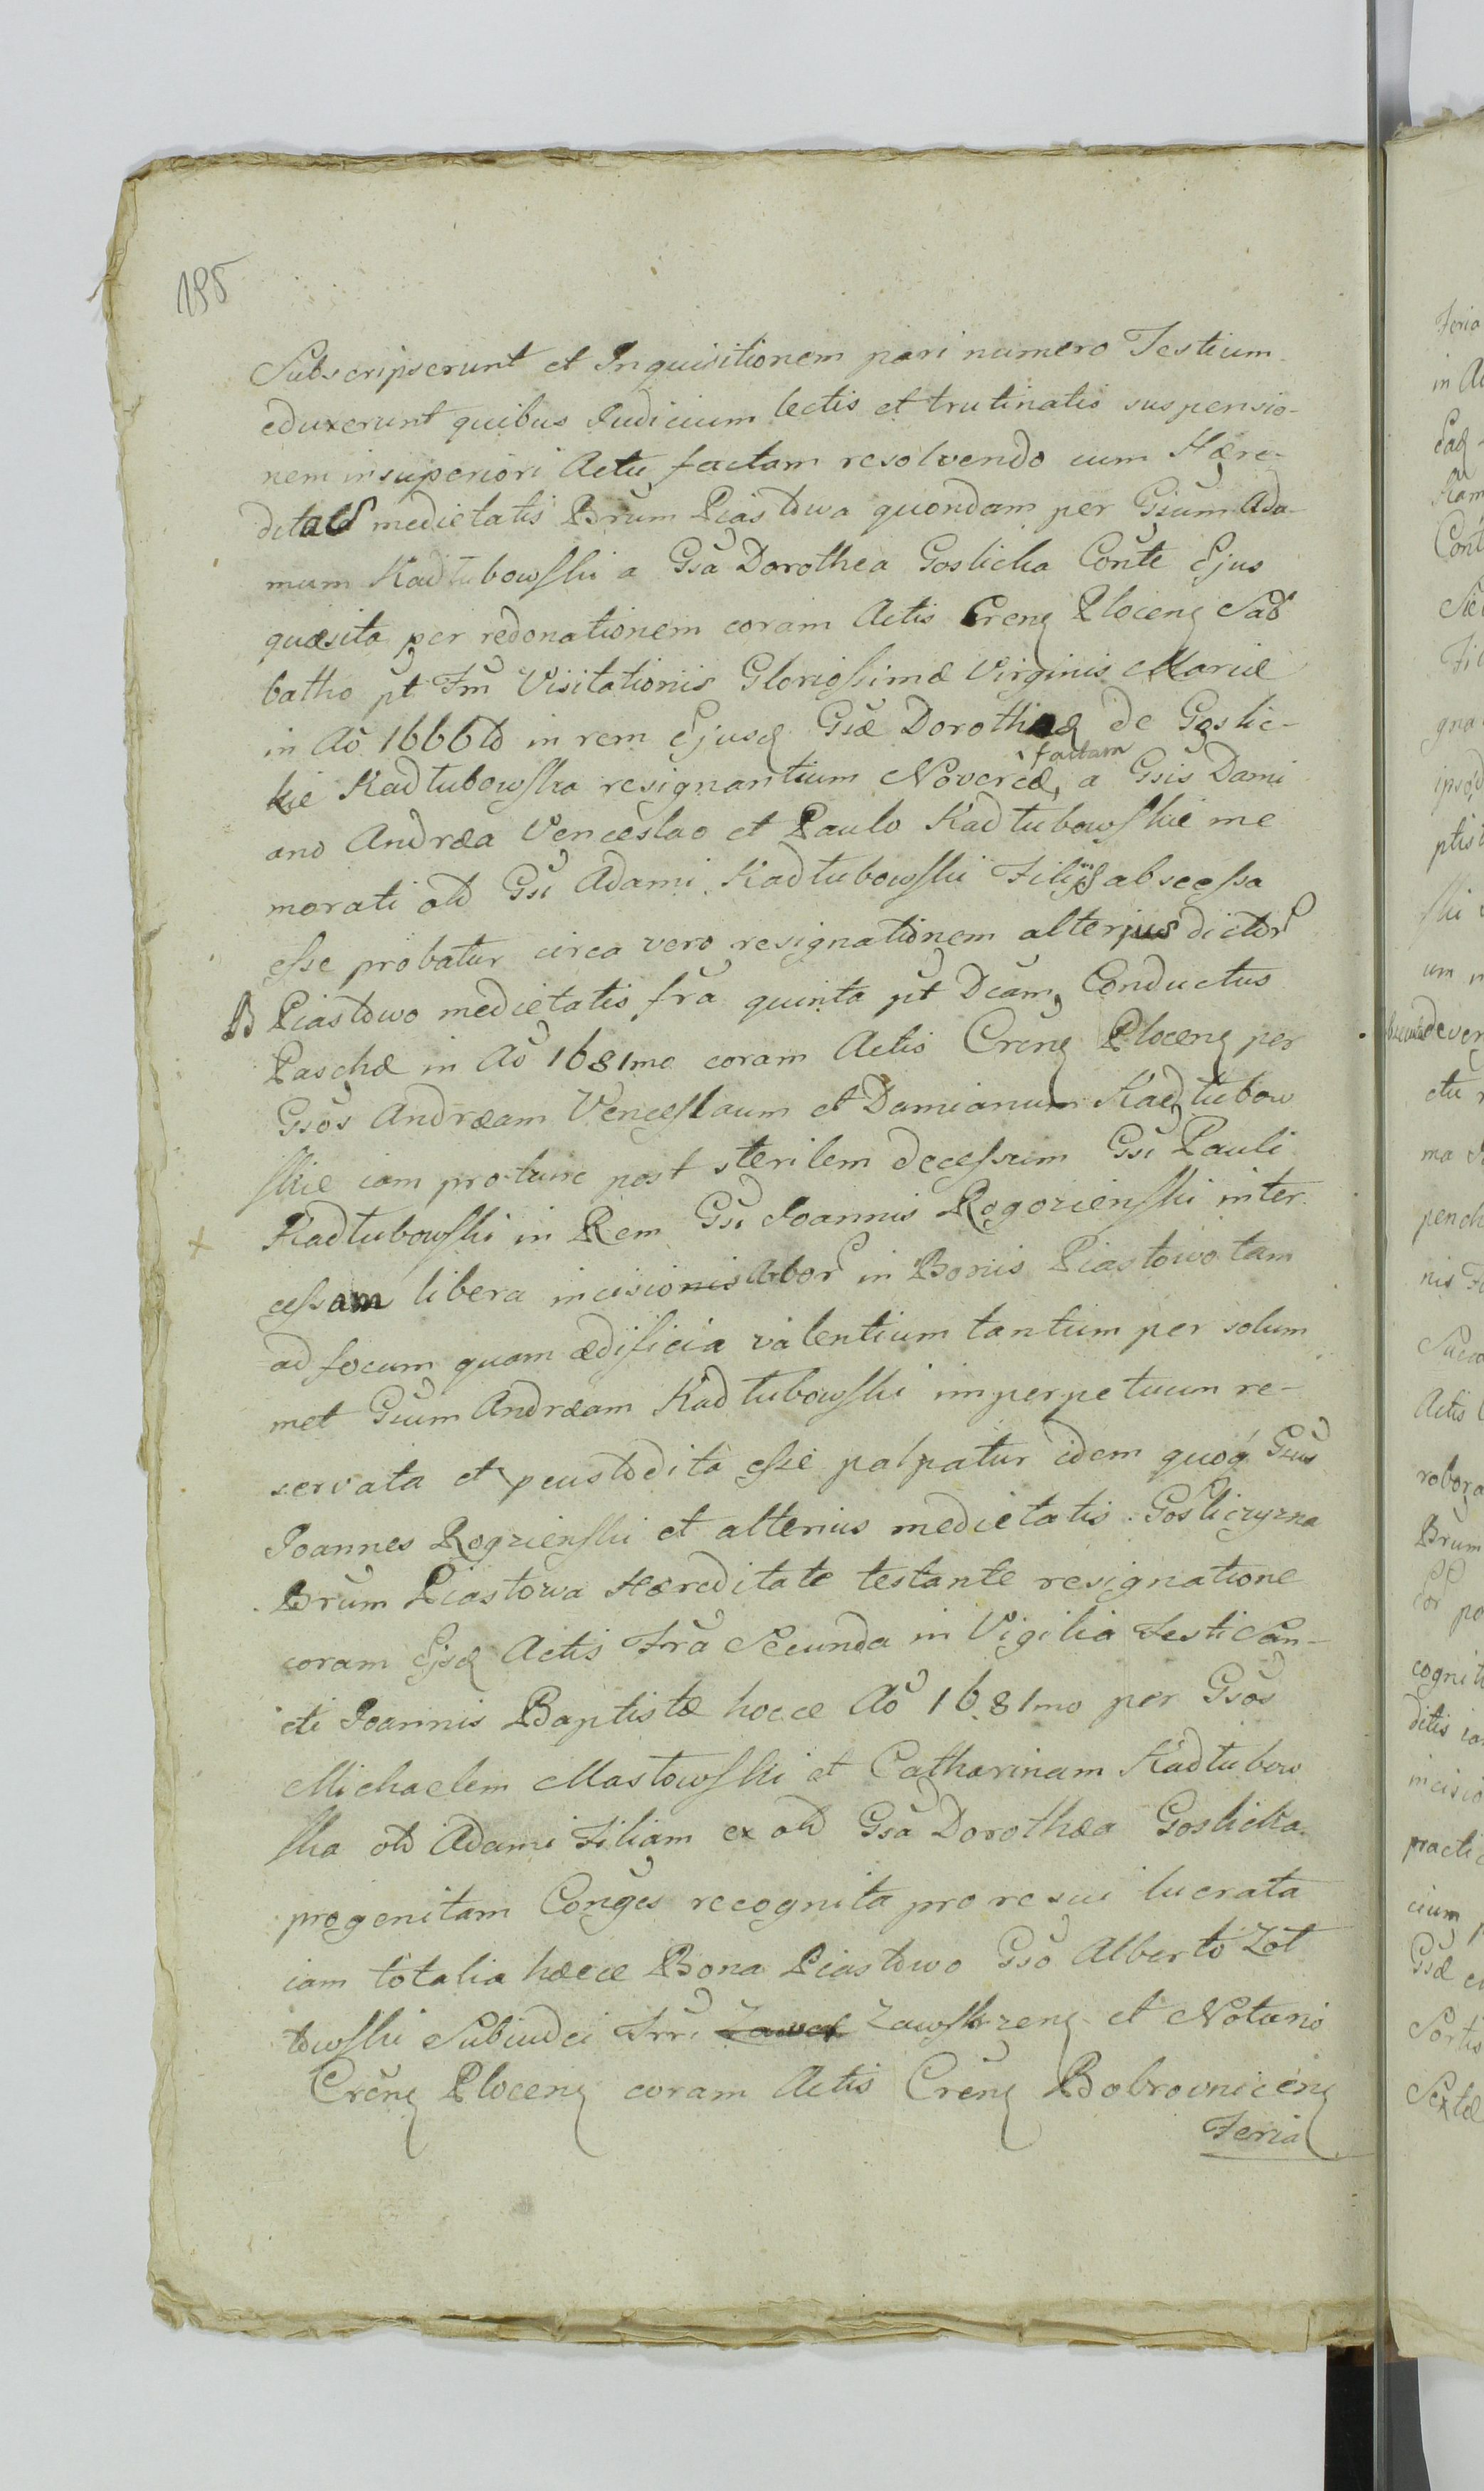 195
Subscripserunt et Inquisitionem pari numero Testium
eduxerunt quibus Iudicium lectis et trutinatis suspensio-
nem in superiori Actu factam resolvendo cum Hære-
ditas medietatis Brum Piastowa quondam per Gsum Ada-
mum Kadłubowski a Gsa Dorothea Goslicka Conte Ejus
quæsita per redonationem coram Actis Crenṣ Plocenṣ Sab
batho pt Fm Visitationis Gloriossimæ Virginis Mariæ
in Ao 1666to in rem Ejusq Gsæ Dorotheæ de Goslic-
factam
kie Kadłubowska resignantium Novercæ, a Gsis Dami
ano Andræa Venceslao et Paulo Kadłubowskie me
morati old Gsi Adami Kadłubowski Filijs abscessa
esse probatur circa vero resignationem alterius dictor
B Piastowo medietatis fra quinta pt Dcam Conductus
Paschæ in Ao 1681mo coram Actis Crenṣ Plocenṣ per
Gsos Andræam Venceslaum et Damianum Kadłubow
skie iam pro tunc post sterilem decessum Gsi Pauli
Kadłubowski in Rem Gsi Joannis Rogozienski inter
cessam libera incisionis Arbor in Bonis Piastowo tam
ad focum quam ædificia valentium tantum per solum
met Gsum Andræam Kadłubowski imperpetuum re-
servata et pcustodita esse palpatur idem quoq Gsus
Joannes Rogzienski et alterius medietatis Gosliczyzna
Brum Piastowa Hæreditate testante resignatione
coram Ejsd Actis Fra Secunda in Vigilia Festi San-
cti Joannis Baptistæ hocce Ao 1681mo per Gsos
Michaelem Mastowski et Catharinam Kadłubow
ska old Adami Filiam ex old Gsa Dorothæa Goslicka
progenitam Conges recognita pro re sui lucrata
iam totalia hæcce Bona Piastowo Gso Alberto Zol
towski Subiudci Trri Zawskrzenṣ et Notario
Crenṣ Plocenṣ coram Actis Crenṣ Bobrovnicenṣ
Feria